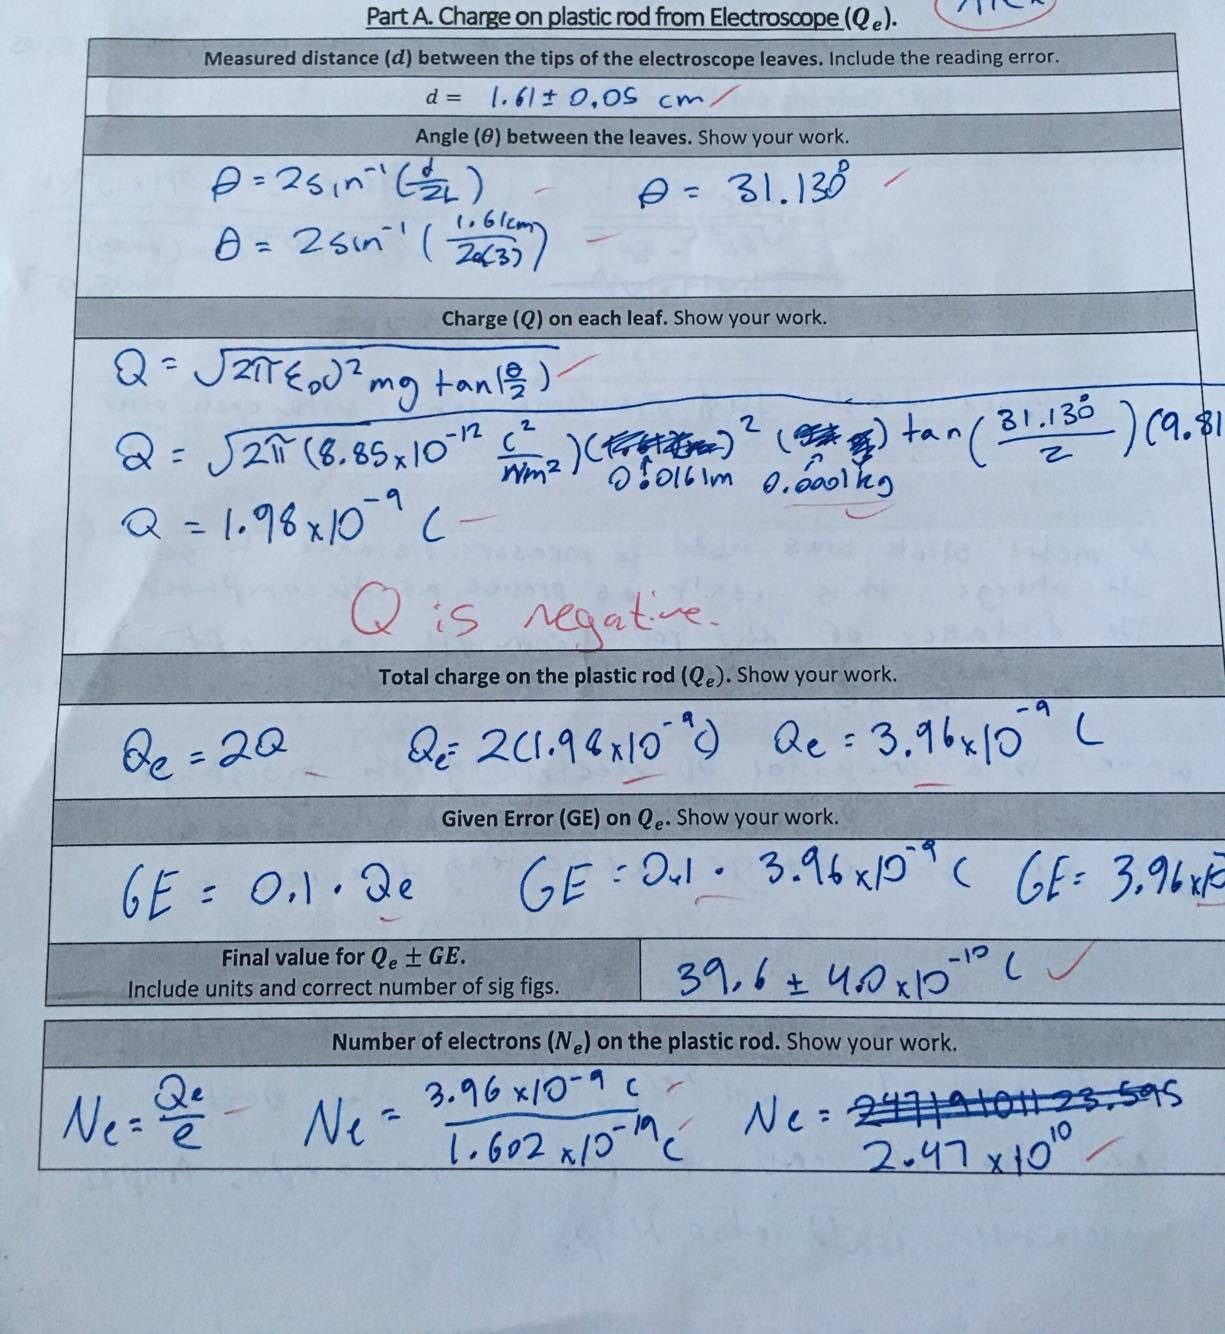 Part A. Charge on plastic rod from Electroscope (Qₑ).
Measured distance (d) between the tips of the electroscope leaves. Include the reading error.
d = 1.61 ± 0.05 cm
Angle (θ) between the leaves. Show your work.
θ = 2sin⁻¹(d/2L) θ = 31.130°
θ = 2sin⁻¹(1.61cm/2(3))
Charge (Q) on each leaf. Show your work.
Q = √2πε₀d² mg tan(θ/2)
Q = √2π(8.85x10⁻¹² C²/Nm²)( )²( ) tan(31.130°/2)(9.81
0.0161m 0.0001kg
Q = 1.98x10⁻⁹ C
Q is negative.
Total charge on the plastic rod (Qₑ). Show your work.
Qe = 2Q Qe = 2(1.98x10⁻⁹C) Qe = 3.96x10⁻⁹ C
Given Error (GE) on Qₑ. Show your work.
GE = 0.1 · Qe GE = 0.1 · 3.96x10⁻⁹ C GE = 3.96x10
Final value for Qₑ ± GE.
Include units and correct number of sig figs.
39.6 ± 4.0x10⁻¹⁰ C
Number of electrons (Nₑ) on the plastic rod. Show your work.
Ne = Qe/e Ne = 3.96x10⁻⁹ C/1.602x10⁻¹⁹ C Ne = 24719101123.595
2.47x10¹⁰